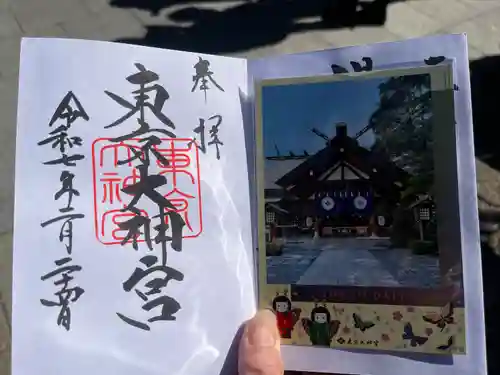 奉拝
東京大神宮
令和七年二月二十四日
東京大神宮
東京大神宮